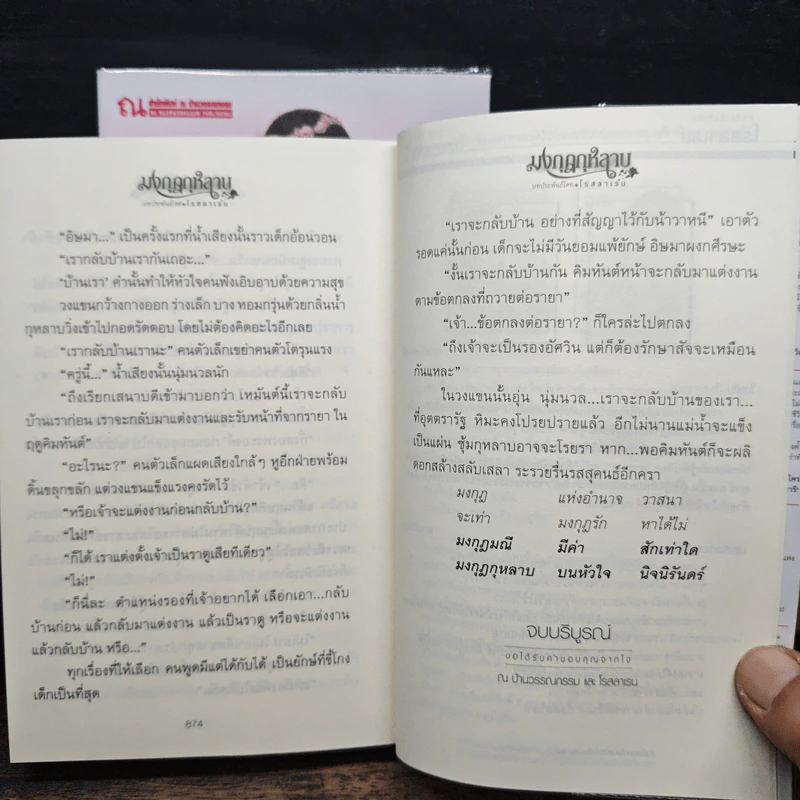 ณ
มงกุฎกุหลาบ
บทประพันธ์โดย โรสลาเร็น
"อิษมา..." เป็นครั้งแรกที่น้ำเสียงนั้นราวเด็กอ้อนวอน
"เรากลับบ้านเรากันเถอะ..."
'บ้านเรา' คำนั้นทำให้หัวใจคนฟังเอิบอาบด้วยความสุข
วงแขนกว้างกางออก ร่างเล็ก บาง หอมกรุ่นด้วยกลิ่นน้ำ
กุหลาบวิ่งเข้าไปกอดรัดตอบ โดยไม่ต้องคิดอะไรอีกเลย
"เรากลับบ้านเรานะ" คนตัวเล็กเขย่าคนตัวโตรุนแรง
"ครู่นี้..." น้ำเสียงนั้นนุ่มนวลนัก
"ถึงเรียกเสนาบดีเข้ามาบอกว่า เหมันต์นี้เราจะกลับ
บ้านเราก่อน เราจะกลับมาแต่งงานและรับหน้าที่จากรายา ใน
ฤดูคิมหันต์"
"อะไรนะ?" คนตัวเล็กแผดเสียงใกล้ๆ หูอีกฝ่ายพร้อม
ดิ้นขลุกขลัก แต่วงแขนแข็งแรงคงรัดไว้
"หรือเจ้าจะแต่งงานก่อนกลับบ้าน?"
"ไม่!"
"ก็ได้ เราแต่งตั้งเจ้าเป็นราตูเสียทีเดียว"
"ไม่!"
"ก็นี่ละ ตำแหน่งรองที่เจ้าอยากได้ เลือกเอา...กลับ
บ้านก่อน แล้วกลับมาแต่งงาน แล้วเป็นราตู หรือจะแต่งงาน
แล้วกลับบ้าน หรือ..."
ทุกเรื่องที่ให้เลือก คนพูดมีแต่ได้กับได้ เป็นยักษ์ที่ขี้โกง
เด็กเป็นที่สุด
874
มงกุฎกุหลาบ
บทประพันธ์โดย โรสลาเร็น
"เราจะกลับบ้าน อย่างที่สัญญาไว้กับน้าวาหนี" เอาตัว
รอดแค่นั้นก่อน เด็กจะไม่มีวันยอมแพ้ยักษ์ อิษมาผงกศีรษะ
"งั้นเราจะกลับบ้านกัน คิมหันต์หน้าจะกลับมาแต่งงาน
ตามข้อตกลงที่ถวายต่อรายา"
"เจ้า...ข้อตกลงต่อรายา?" ก็ใครล่ะไปตกลง
"ถึงเจ้าจะเป็นรองอัศวิน แต่ก็ต้องรักษาสัจจะเหมือน
กันแหละ"
ในวงแขนนั้นอุ่น นุ่มนวล...เราจะกลับบ้านของเรา...
ที่อุตตรารัฐ หิมะคงโปรยปรายแล้ว อีกไม่นานแม่น้ำจะแข็ง
เป็นแผ่น ซุ้มกุหลาบอาจจะโรยรา หาก...พอคิมหันต์ก็จะผลิ
ดอกสล้างสลับเสลา ระรวยรื่นรสสุคนธ์อีกครา
มงกุฎ แห่งอำนาจ วาสนา
จะเท่า มงกุฎรัก หาได้ไม่
มงกุฎมณี มีค่า สักเท่าใด
มงกุฎกุหลาบ บนหัวใจ นิจนิรันดร์
จบบริบูรณ์
ขอได้รับคำขอบคุณจากใจ
ณ บ้านวรรณกรรม และ โรสลาเรน